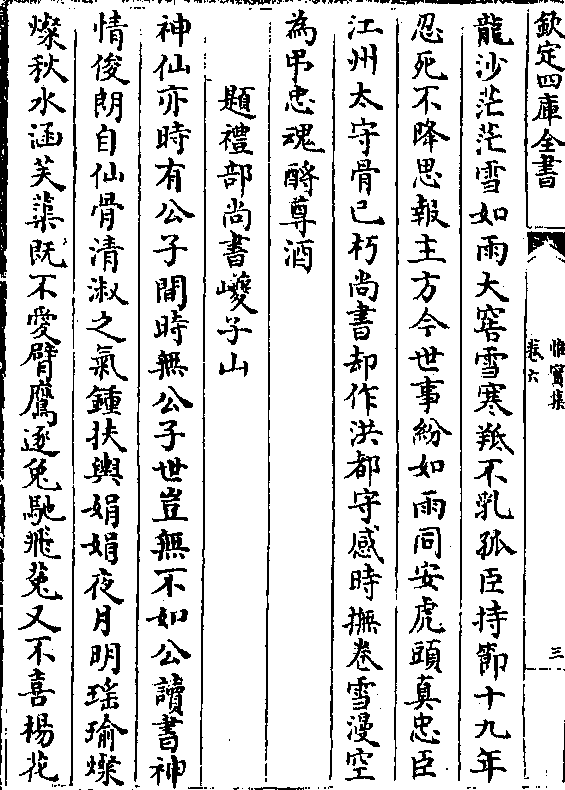 欽定四庫全書
惟實集
卷六
三
龍沙茫茫雪如雨大窖雪寒羝不乳孤臣持節十九年
忍死不降思報主方今世事紛如雨同安虎頭真忠臣
江州太守骨已朽尚書却作洪都守感時撫卷雪漫空
為弔忠魂酹尊酒
題禮部尚書巙子山
神仙亦時有公子間時無公子世豈無不如公讀書神
情俊朗自仙骨清淑之氣鍾扶輿娟娟夜月明瑤瑜燦
燦秋水涵芙蕖既不愛臂鷹逐兔馳飛菟又不喜楊花